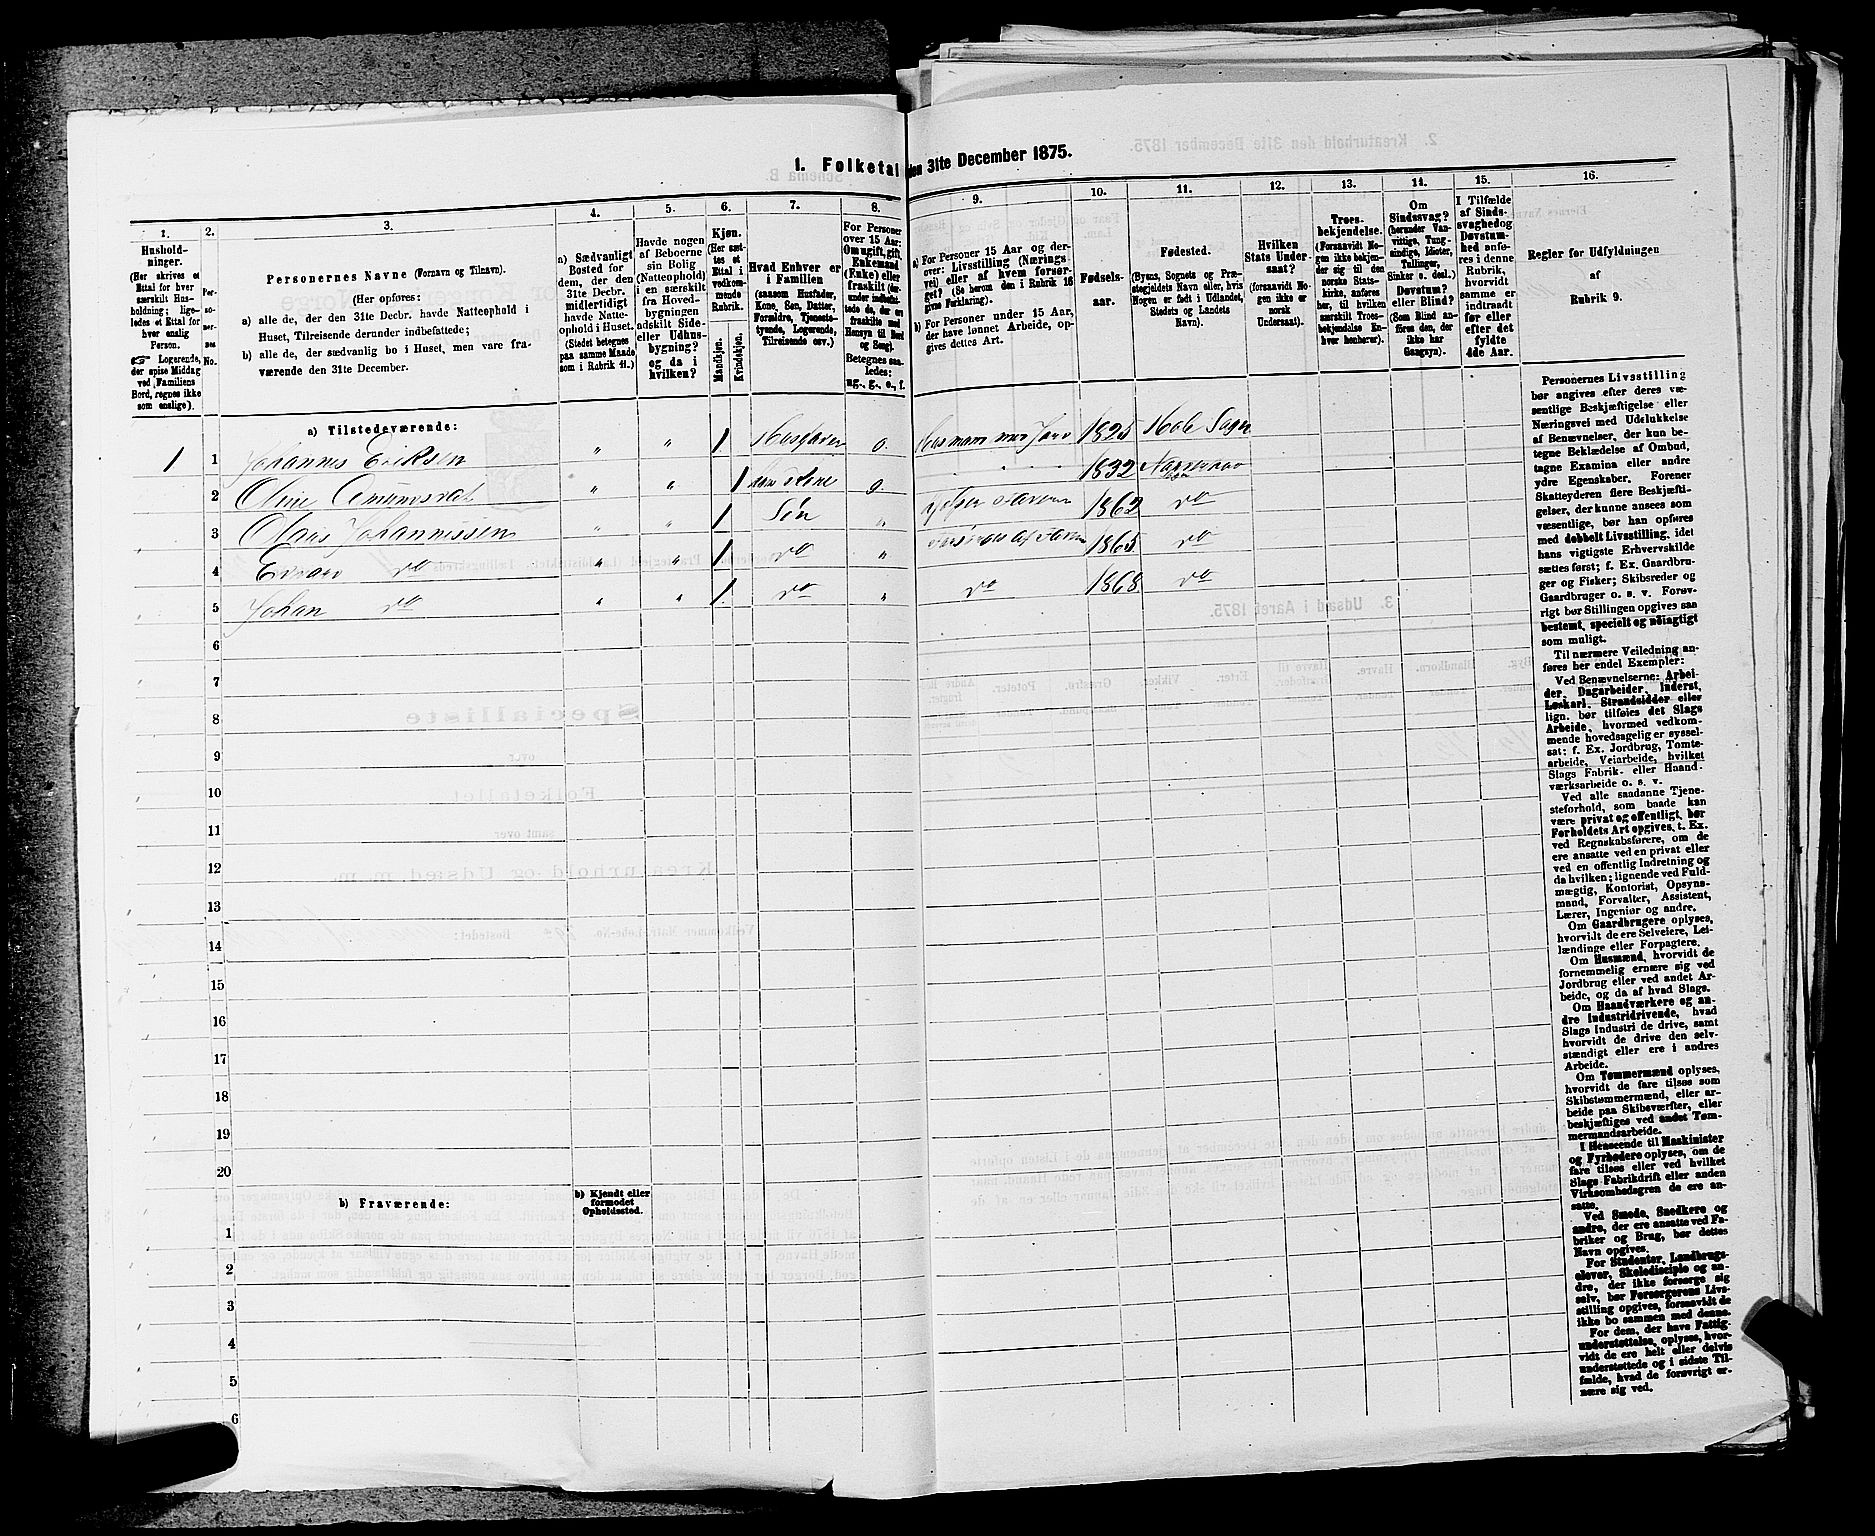 1. Folketal den 31te December 1875.
1.
Hushold-
ninger.
(Her skrives et
Ettal for hver
særskilt Hus-
holdning; lige-
ledes et Ettal for
hver enslig
Person.
☞ Logerende,
der spise Middag
ved Familiens
Bord, regnes ikke
som enslige).
2.
Per-
so-
ner-
nes
No.
3.
Personernes Navne (Fornavn og Tilnavn).
(Her opføres:
a) alle de, der den 31te Decbr. havde Natteophold i
Huset, Tilreisende derunder indbefattede;
b) alle de, der sædvanlig bo i Huset, men vare fra-
værende den 31te December.
4.
a) Sædvanligt
Bosted for
dem, der den
31te Decbr.
midlertidigt
havde Natte-
ophold i Huset.
(Stedet betegnes
paa samme Maade
som i Rubrik 11.)
5.
Havde nogen
af Beboerne
sin Bolig
(Natteophold)
i en særskilt
fra Hoved-
bygningen
adskilt Side-
eller Udhus-
bygning?
og da i
hvilken?
6.
Kjøn.
(Her sæt-
tes et
Ettal i
vedkom-
mende
Rubrik.
Mandkjøn.
Kvindekjøn.
7.
Hvad Enhver er
i Familien
(saasom Husfader,
Kone, Søn, Datter,
Forældre, Tjeneste-
tyende, Logerende,
Tilreisende osv.)
8.
For Personer
over 15 Aar:
Om ugift, gift,
Enkemand
(Enke) eller
fraskilt
Betegnes saa-
ledes:
ug., g., e., f.
9.
a) For Personer 15 Aar og der-
over: Livsstilling (Nærings-
vei) eller af hvem forsør-
get? (Se herom den i Rubrik 16
givne Forklaring).
b) For Personer under 15 Aar,
der have lønnet Arbeide, op-
gives dettes Art.
10.
Fødsels-
aar.
11.
Fødested.
(Byens, Sognets og Præ-
stegjeldets Navn eller, hvis
Nogen er født i Udlandet,
Stedets og Landets
Navn).
12.
Hvilken
Stats Under-
saat?
(forsaavidt No-
gen ikke er
norsk
Undersaat).
13.
Troes-
bekjendelse.
(Forsaavidt No-
gen ikke bekjen-
der sig til den
norske Stats-
kirke, anføres
her, til hvilken
særskilt Troes-
bekjendelse En-
hver henhører).
14.
Om
Sindssvag?
(herunder Van-
vittige, Tung-
sindige, Idioter,
Tullinger,
Sinker o. desl.)
Døvstum?
eller Blind?
(Som Blind an-
føres den, der
ikke har
Gangsyn).
15.
I Tilfælde
af Sinds-
svaghedog
Døvstum-
hed anfø-
res i denne
Rubrik,
hvorvidt
samme er
indtraadt
før eller
efter det
fyldte
4de Aar.
16.
Regler for Udfyldningen
af
Rubrik 9.
a) Tilstedeværende:
1 1 Johannes Eriksen " " 1 Husfader g. Husmand med Jord 1825 Hole Sogn
2 Oline Amundsdat " " 1 hans Kone g. 1832
3 Johannessen " " 1 Søn " 1862 do
4 do " " 1 do " forsørges af Faren 1865 do
5 Johan do " " 1. do " do 1868 do
6
7
8
9
10
11
12
13
14
15
16
17
18
19
20
b) Fraværende:
b) Kjendt eller
formodet
Opholdssted.
1
2
3
4
5
6
Personernes Livsstilling
bør angives efter deres væ-
sentlige Beskjæftigelse eller
Næringsvei med Udelukkelse
af Benævnelser, der kun be-
tegne Beklædelse af Ombud,
tagne Examina eller andre
ydre Egenskaber. Forener
Skatteyderen flere Beskjæfti-
gelser, der kunne ansees som
væsentlige, bør han opføres
med dobbelt Livsstilling, idet
hans vigtigste Erhvervskilde
sættes først; f. Ex. Gaardbru-
ger og Fisker; Skibsreder og
Gaardbruger o. s. v. Forøv-
rigt bør Stillingen opgives saa
bestemt, specielt og nøiagtigt
som muligt.
Til nærmere Veiledning an-
føres her endel Exempler:
Ved Benævnelserne: Arbei-
der, Dagarbeider, Inderst,
Løskarl, Strandsidder eller
lign. bør tilføies det Slags
Arbeide, hvormed vedkom-
mende hovedsagelig er syssel-
sat; f. Ex. Jordbrug, Tomte-
arbeide, Veiarbeide, hvilket
Slags Fabrik- eller Haand-
værksarbeide o. s. v.
Ved alle saadanne Tjene-
steforhold, som baade kan
være privat og offentligt, bør
Forholdets Art opgives, t. Ex.
ved Regnskabsførere, om de
ere ansatte ved en privat eller
ved en offentlig Indretning og
da hvilken; lignende ved Fuld-
mægtig, Kontorist, Opsyns-
mand, Forvalter, Assistent,
Lærer, Ingeniør og andre.
Om Gaardbrugere oplyses,
hvorvidt de ere Selveiere, Lei-
lændinge eller Forpagtere.
Om Husmænd, hvorvidt de
fornemmelig ernære sig ved
Jordbrug eller ved andet Ar-
beide, og da af hvad Slags.
Om Haandværkere og an-
dre Industridrivende, hvad
Slags Industri de drive, samt
hvorvidt de drive den selv-
stændigt eller ere i andres
Arbeide.
Om Tømmermænd oplyses,
hvorvidt de fare tilsøs som
Skibstømmermænd, eller ar-
beide paa Skibsværfter, eller
beskjæftiges ved andet Tøm-
mermandsarbeide.
I Henseende til Maskinister
og Fyrbødere oplyses, om de
fare tilsøs eller ved hvilket
Slags Fabrikdrift eller anden
Virksomhedsgren de ere an-
satte.
Ved Smede, Snedkere og
andre, der ere ansatte ved Fa-
briker og Brug, bør dettes
Navn opgives.
For Studenter, Landbrugs-
elever, Skoledisciple og an-
dre, der ikke forsørge sig
selv, bør Forsørgerens Livs-
stilling opgives, forsaavidt de
ikke bo sammen med denne.
For dem, der have Fattig-
understøttelse, oplyses, hvor-
vidt de ere helt eller delvis
understøttede og i sidste Til-
fælde, hvad de forøvrigt er-
nære sig ved.